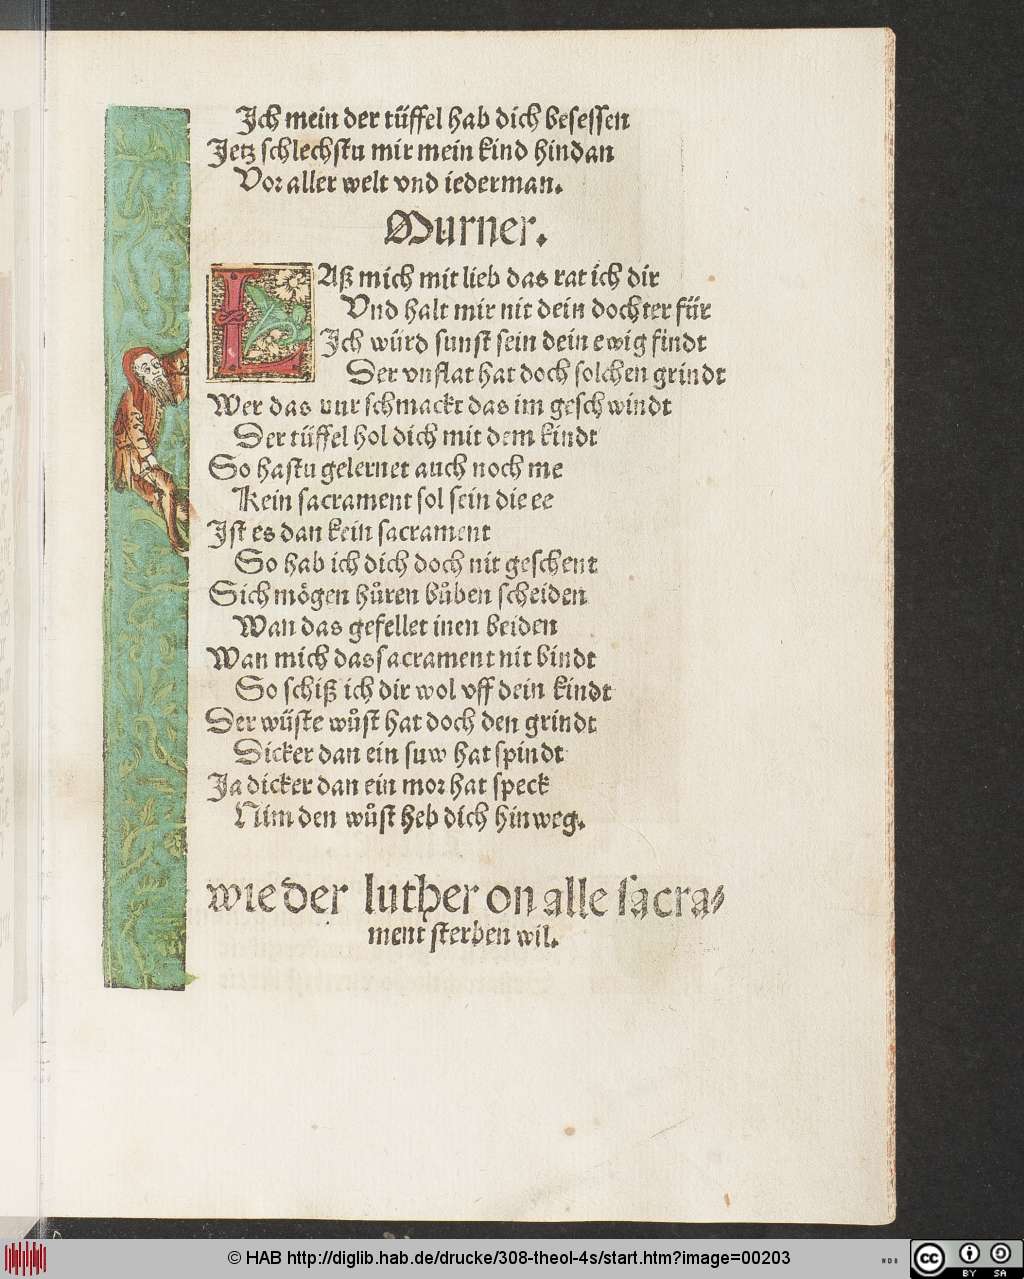 Ich mein der tüffel hab dich besessen
Jetz schlechstu mir mein kind hindan
Vor aller welt vnd iederman.
Murner.
LAß mich mit lieb das rat ich dir
Vnd halt mir nit dein dochter für
Ich würd sunst sein dein ewig findt
Der vnflat hat doch solchen grindt
Wer das nur schmackt das im geschwindt
Der tüffel hol dich mit dem kindt
So hastu gelernet auch noch me
Kein sacrament sol sein die ee
Ist es dan kein sacrament
So hab ich dich doch nit geschent
Sich mögen hůren bůben scheiden
Wan das gefellet inen beiden
Wan mich das sacrament nit bindt
So schiß ich dir wol vff dein kindt
Der wüste wůst hat doch den grindt
Dicker dan ein suw hat spindt
Ja dicker dan ein mor hat speck
Nim den wůst heb dich hinweg.
wie der luther on alle sacra⸗
ment sterben wil.
© HAB http://diglib.hab.de/drucke/308-theol-4s/start.htm?image=00203
WDB
cc BY SA